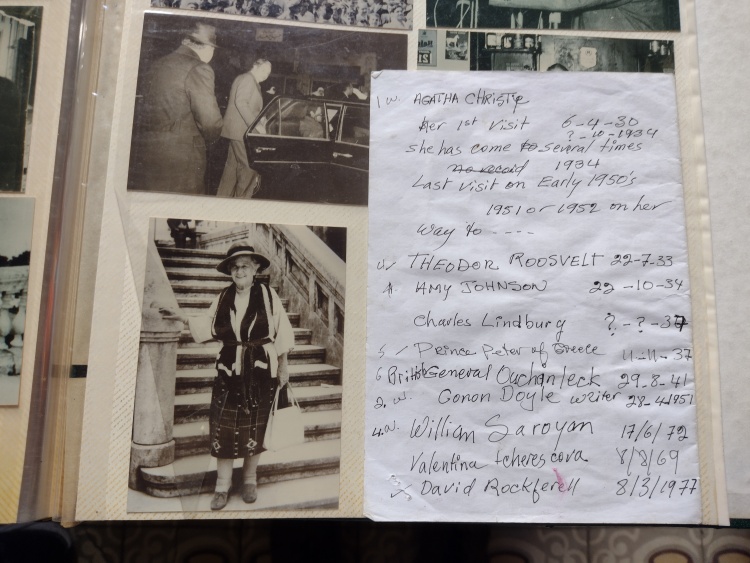 1 w. AGATHA CHRISTY
Her 1st visit 6-4-30
?-10-1934
she has come to several times
no record 1934
Last visit on Early 1950's
1951 or 1952 on her
way to ----
THEODOR ROOSVELT 22-7-33
AMY JOHNSON 22-10-34
Charles Lindburg ?-?-37
5 Prince Peter of Greece 11-11-37
6 British General Ouchanleck 29-8-41
2. w. Conon Doyle writer 28-4-1951
4. w. William Saroyan 17/6/72
Valentina tcherescova 8/8/69
David Rockferell 8/3/1977